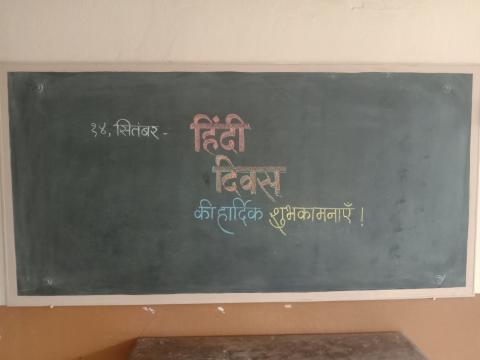 १४, सितंबर - हिंदी
दिवस
की हार्दिक शुभकामनाएँ !